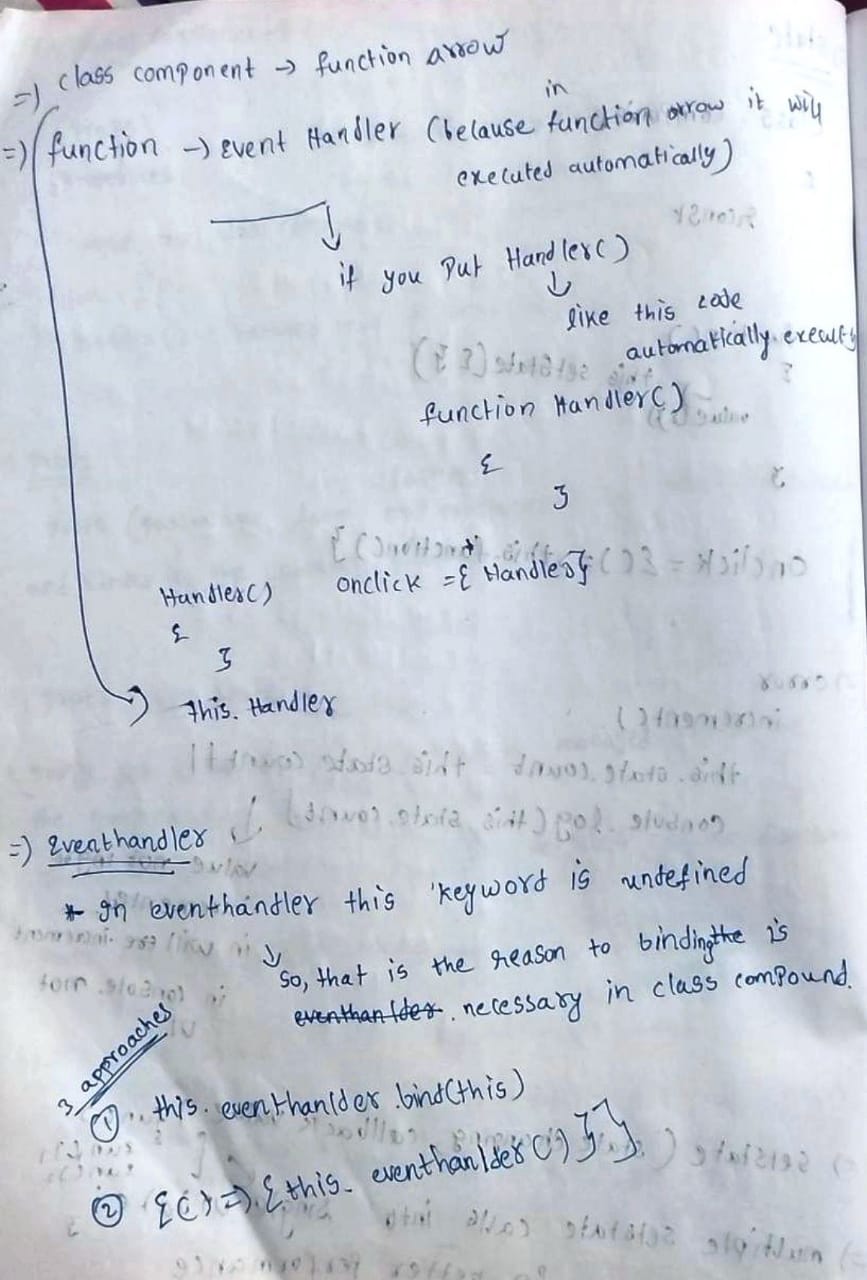 =) class component → function arrow
=) function → Event Handler (belause in function arrow it will
executed automatically)
if you Put Handler()
like this code
automatically execulty
function Handler()
{
}
onclick = { Handler}
Handler()
{
}
this. Handler
=) Eventhandler
* In eventhandler this 'keyword is undefined
so, that is the reason to binding the is
eventhanlder. necessary in class compound.
3 approaches
① this. eventhanlder .bind(this)
② {() => {this. eventhanlder () } }